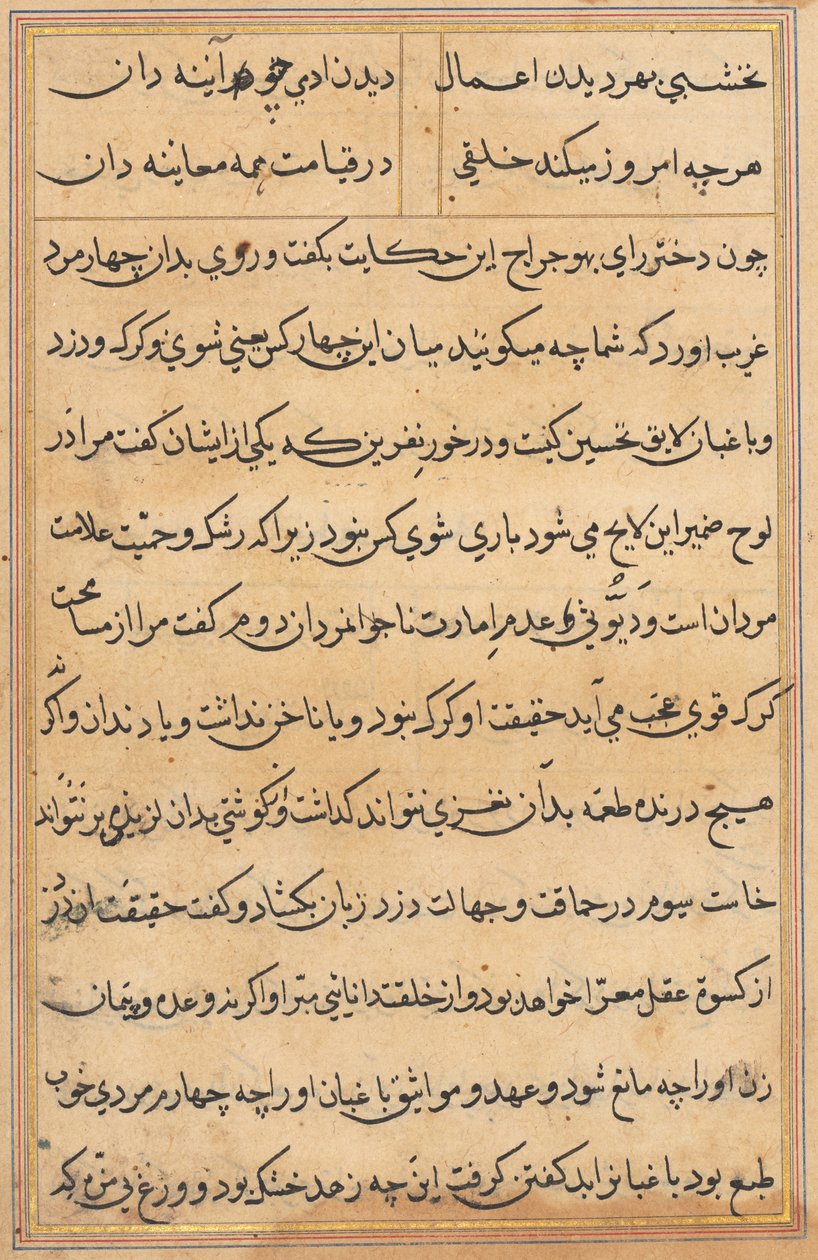 نخشبي بهر ديدن اعمال ديدن ادمي چو آينه دان
هرچه امروز ميكند خلقي در قيامت همه معاينه دان
چون دختر راي بهوجراج اين حكايت بكفت و روي بدان چهار مرد
غريب اورد كه شما چه ميكوئيد ميان اين چهار كس يعني شوي و كرك و دزد
و باغبان لايق تحسين كيست و در خور نفرين كه يكي از ايشان كفت مرا در
لوح ضمير اين لايح مي شود باري شوي كس نبود زيراكه رشك و حميّت علامت
مردان است و دَيُّوثي و عدم امارت ناجوانمردان دوم كفت مرا از مسامحت
كرك قوي عجب مي آيد حقيقت او كرك نبود و يا ناخن نداشت و يا دندان و اكر نه
هيچ درنده طعمه بدان نغزي نتواند كذاشت و از كوشتي بدان لزيذي بر نتواند
خاست سيوم در حماقت و جهالت دزد زبان بكشاد و كفت حقيقت ان دزد
از كسوة عقل معرّا خواهد بود و از خلقت دانائي مبّرا و اكر نه وعده و پيمان
زن او را چه مانع شود و عهد و مواثيق باغبان او را چه چهارم مردي خوب
طبع بود باغبانرا بد كفتن كرفت اين چه زهد خشك بود و ورغ بي مزه كه